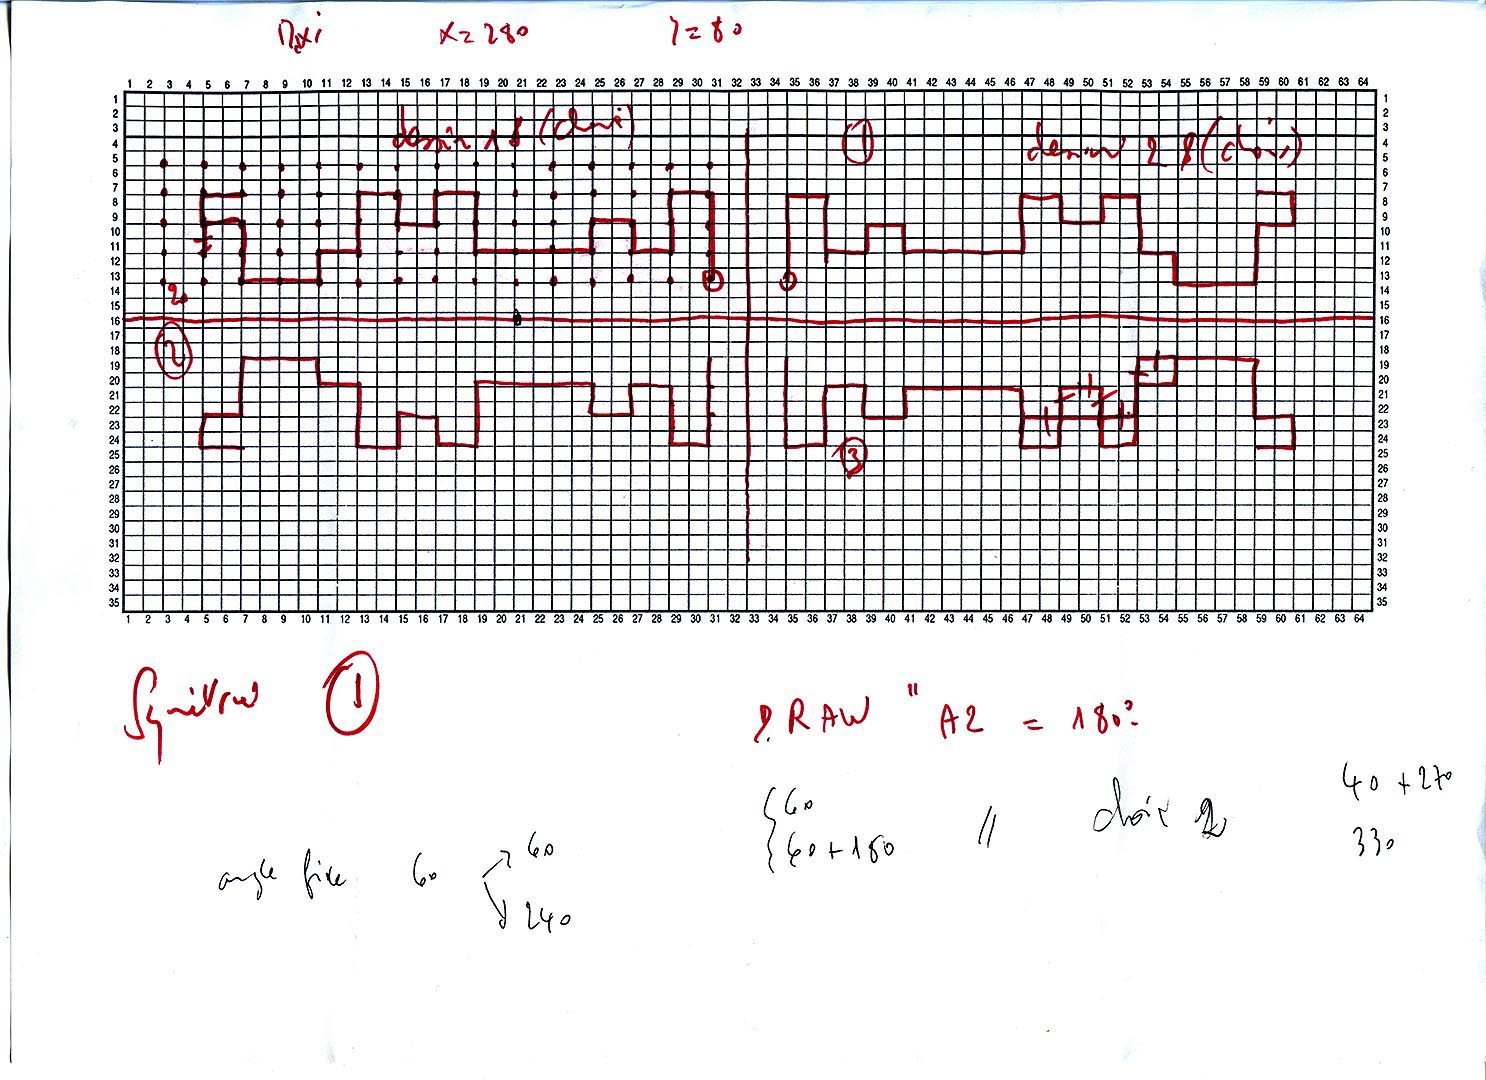 Maxi x=280 y=80
1 2 3 4 5 6 7 8 9 10 11 12 13 14 15 16 17 18 19 20 21 22 23 24 25 26 27 28 29 30 31 32 33 34 35 36 37 38 39 40 41 42 43 44 45 46 47 48 49 50 51 52 53 54 55 56 57 58 59 60 61 62 63 64
1 1
2 2
3 3
dessin 1$ 1 dessin 2$
4 4
5 5
6 6
7 7
8 8
9 9
10 10
11 11
12 12
13 13
14 14
20
15 15
16 16
17 17
2
18 18
19 19
20 20
21 21
22 22
23 23
24 24
25 25
3
26 26
27 27
28 28
29 29
30 30
31 31
32 32
33 33
34 34
35 35
1 2 3 4 5 6 7 8 9 10 11 12 13 14 15 16 17 18 19 20 21 22 23 24 25 26 27 28 29 30 31 32 33 34 35 36 37 38 39 40 41 42 43 44 45 46 47 48 49 50 51 52 53 54 55 56 57 58 59 60 61 62 63 64
1
DRAW "A2 = 180°
60 choix 2 40 + 270
60 + 180 // 330
angle fixe 60 60
240